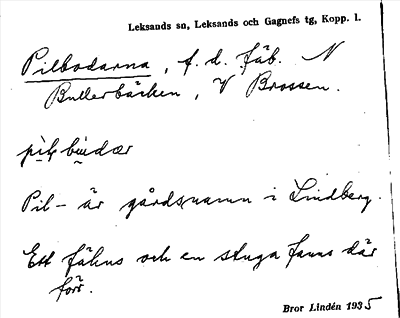 Leksands sn, Leksands och Gagnefs tg, Kopp. l.
Pilbodarna, f. d. fäb. N
Bullerbäcken, V Brossen.
Pil- är gårdsnamn i Lindberg.
Ett fähus och en stuga fanns där
förr.
Bror Lindén 1935